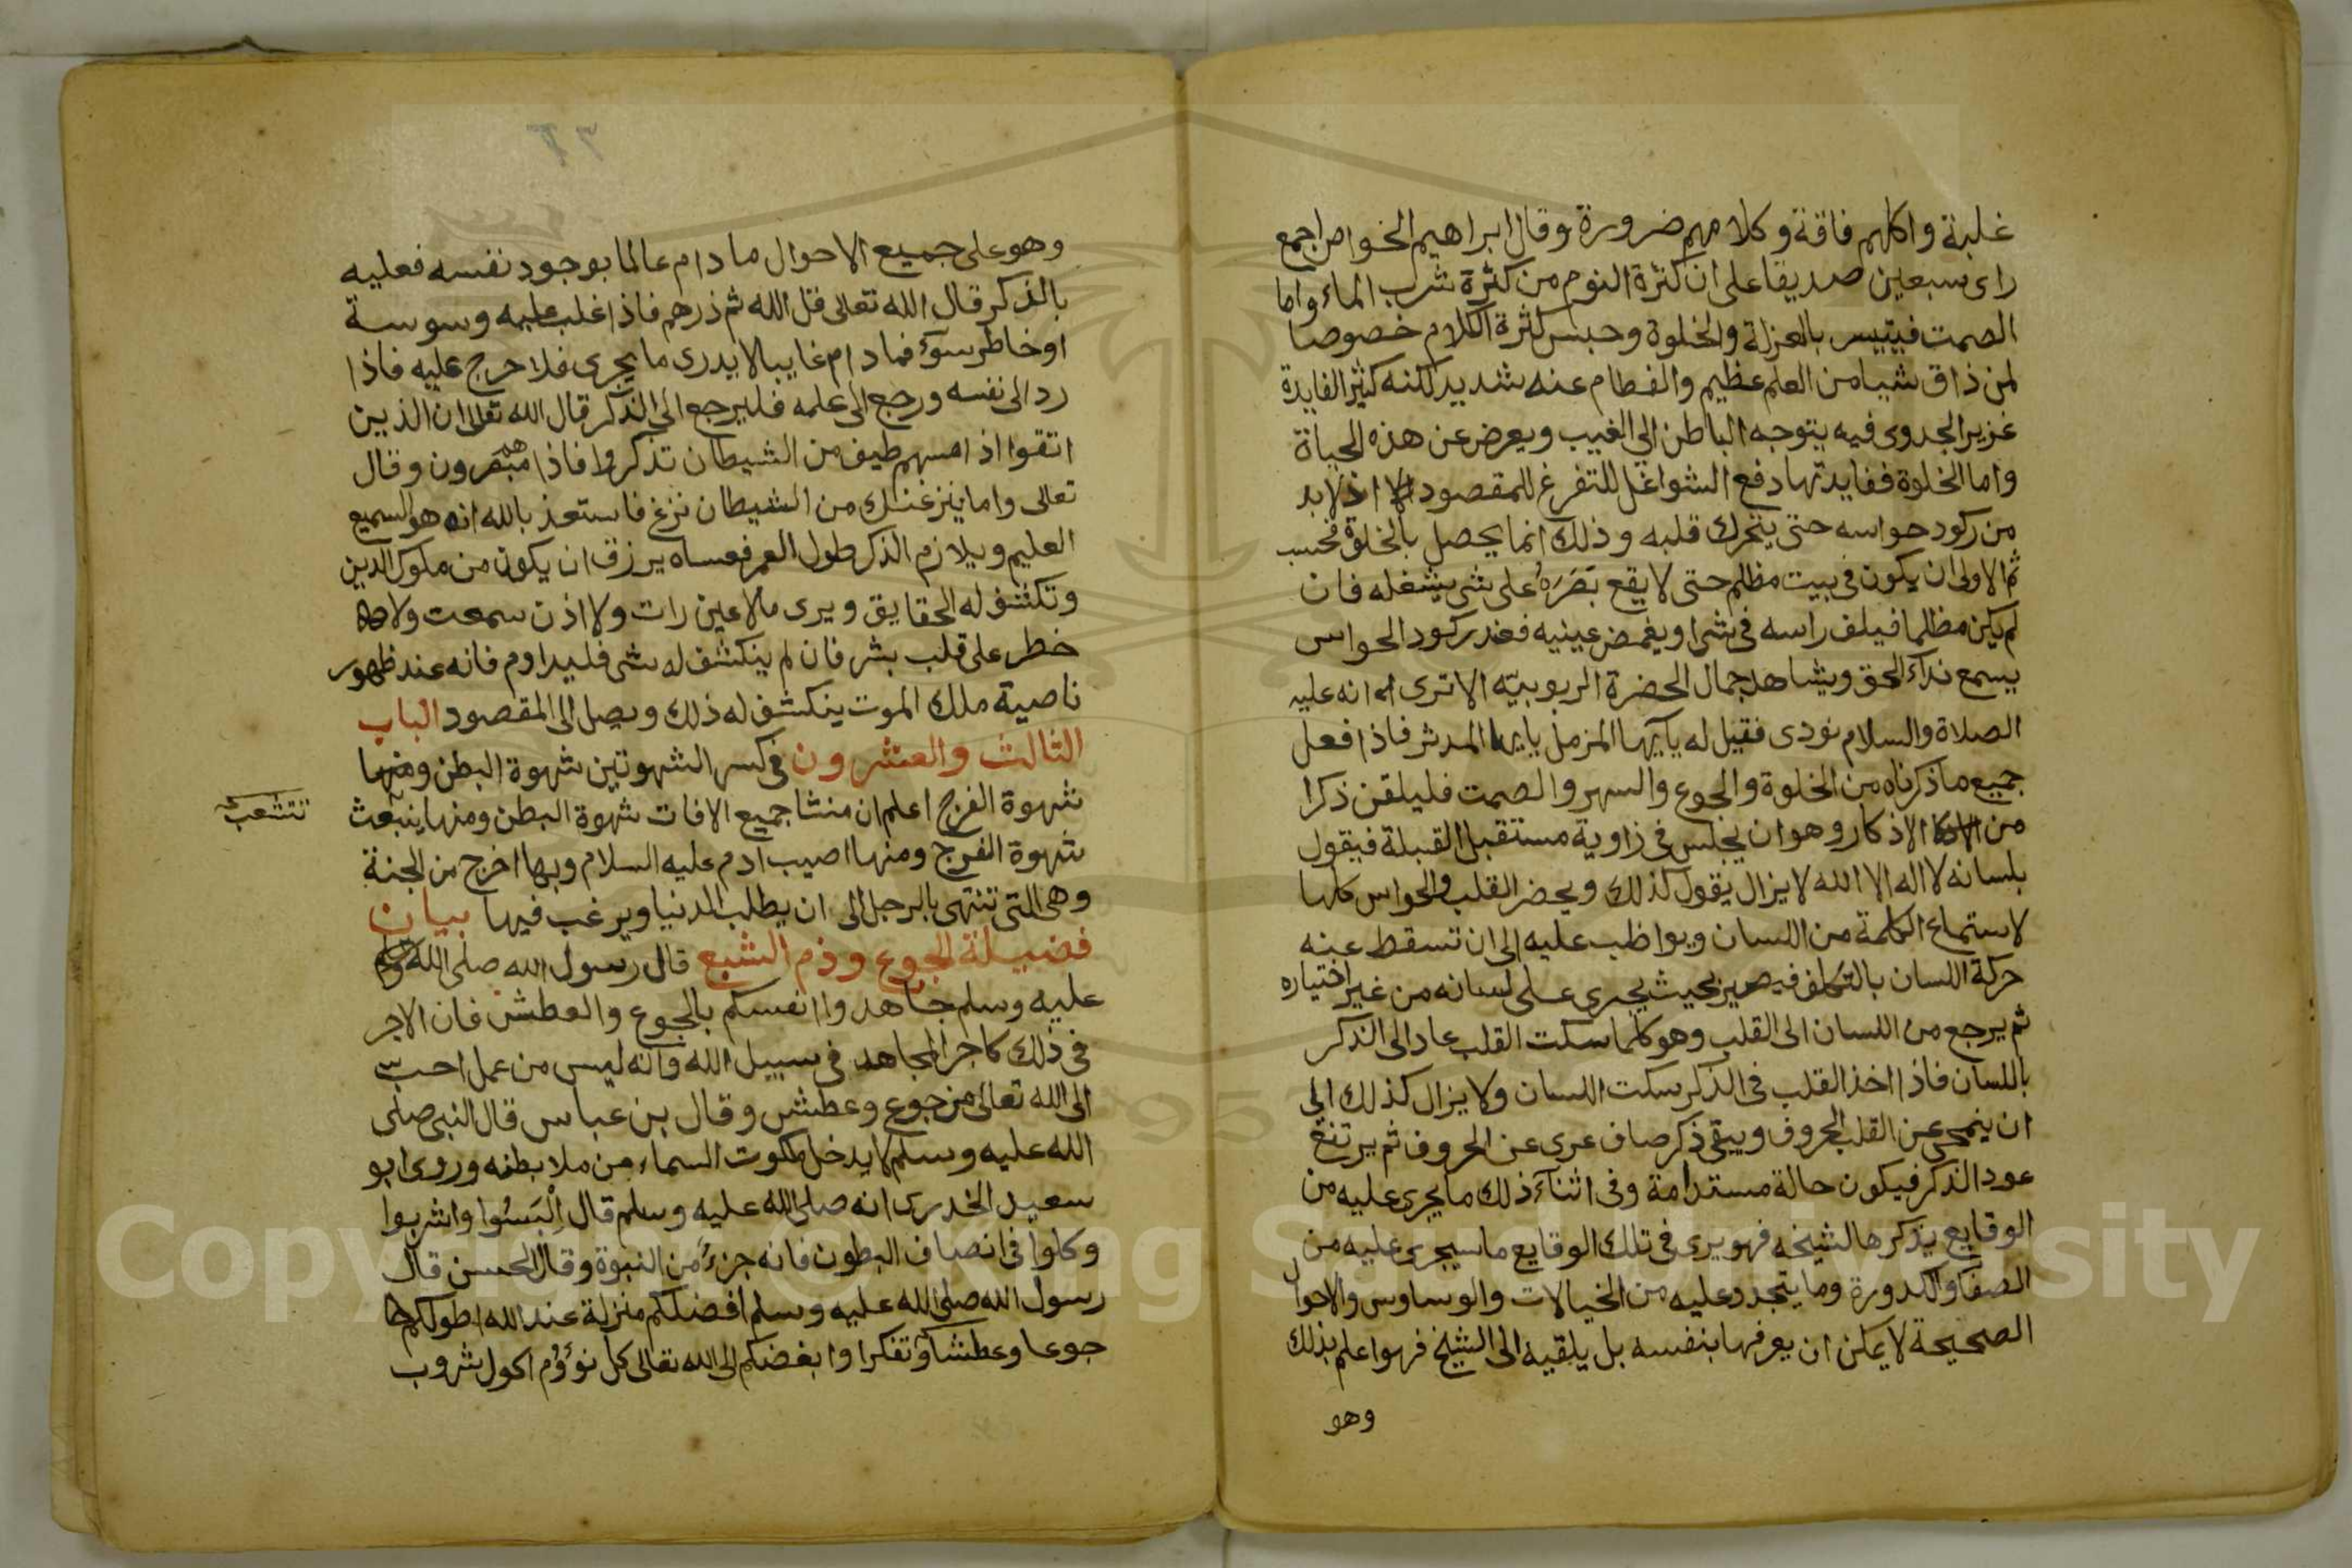 غلبة واكلهم فاقة وكلامهم ضرورة وقال ابراهيم الخواص اجمع
راى سبعين صديقا على ان كثرة النوم من كثرة شرب الماء واما
الصمت فيتيسر بالعزلة والخلوة وحبس كثرة الكلام خصوصا
لمن ذاق شيا من العلم عظيم والفطام عنه شديد لكنه كثير الفايدة
غزير الجدوى فيه يتوجه الباطن الى الغيب ويعرض عن هذه الحياة
واما الخلوة ففايدتها دفع الشواغل للتفرغ للمقصود اذ لابد
من ركود حواسه حتى يتحرك قلبه وذلك انما يحصل بالخلوة فحسب
ثم الاولى ان يكون فى بيت مظلم حتى لا يقع بَصَرَهُ على شى يشغله فان
لم يكن مظلما فيلف راسه فى شى او يغمض عينيه فعند ركود الحواس
يسمع نداء الحق ويشاهد جمال الحضرة الربوبيّه الا ترى انه عليه
الصلاة والسلام نودى فقيل له يا آيها المزمل يايها المدثر فاذا فعل
جميع ما ذكرناه من الخلوة والجوع والسهر والصمت فليلقن ذكرا
من الاذكار وهو ان يجلس فى زاوية مستقبل القبلة فيقول
بلسانه لا اله الا الله لا يزال يقول كذلك ويحضر القلب والحواس كلها
لاستماع الكلمة من اللسان ويواظب عليه الى ان تسقط عنه
حركة اللسان بالتكلف فيصير بحيث يجرى على لسانه من غير اختياره
ثم يرجع من اللسان الى القلب وهو كلما سكت القلب عاد الى الذكر
باللسان فاذا اخذ القلب فى الذكر سكت اللسان ولا يزال كذلك الى
ان ينمحى عن القلب الحروف ويبقى ذكر صاف عرى عن الحروف ثم يرتفع
عود الذكر فيكون حالة مستدامة وفى اثناء ذلك ما يجرى عليه من
الوقايع يذكرها لشيخه فهو يرى فى تلك الوقايع ما سيجرى عليه من
الصفاء والكدورة وما يتجدد عليه من الخيالات والوساوس والاحوال
الصحيحة لا يمكن ان يعرفها بنفسه بل يلقيه الى الشيخ فهو اعلم بذلك
وهو
وهو على جميع الاحوال ما دام عالما بوجود نفسه فعليه
بالذكر قال الله تعالى قل الله ثم ذرهم فاذا غلب عليه وسوسة
او خاطر سوء فما دام غايبا لا يدرى ما يجرى فلا حرج عليه فاذا
رد الى نفسه ورجع الى علمه فليرجع الى الذكر قال الله تعالى ان الذين
اتقوا اذا مسهم طيف من الشيطان تذكروا فاذا هم مبصرون وقال
تعالى واما ينزغنك من الشيطان نزغ فاستعذ بالله انه هو السميع
العليم ويلازم الذكر طول العمر فعساه يرزق ان يكون من ملوك الدين
وتكشف له الحقايق ويرى ما لا عين رات ولا اذن سمعت ولا
خطر على قلب بشر فان لم ينكشف له شى فليداوم فانه عند ظهور
ناصية ملك الموت ينكشف له ذلك ويصل الى المقصود الباب
الثالث والعشرون فى كسر الشهوتين شهوة البطن ومنها
شهوة الفرج اعلم ان منشا جميع الافات شهوة البطن ومنها ينبعث
تتشعب
شهوة الفرج ومنها اصيب ادم عليه السلام وبها اخرج من الجنة
وهى التى تنتهى بالرجل الى ان يطلب الدنيا ويرغب فيها بيان
فضيلة الجوع وذم الشبع قال رسول الله صلى الله
عليه وسلم جاهدوا انفسكم بالجوع والعطش فان الاجر
فى ذلك كاجر المجاهد فى سبيل الله وانه ليس من عمل احب
الى الله تعالى من جوع وعطش وقال بن عباس قال النبى صلى
الله عليه وسلم لا يدخل ملكوت السماء من ملا بطنه وروى ابو
سعيد الخدرى انه صلى الله عليه وسلم قال اِلْبَسُوا واشربوا
وكلوا فى انصاف البطون فانه جزء من النبوة وقال الحسن قال
رسول الله صلى الله عليه وسلم افضلكم منزلة عند الله اطولكم
جوعا وعطشا وتفكرا وابغضكم الى الله تعالى كل نؤوم اكول شروب